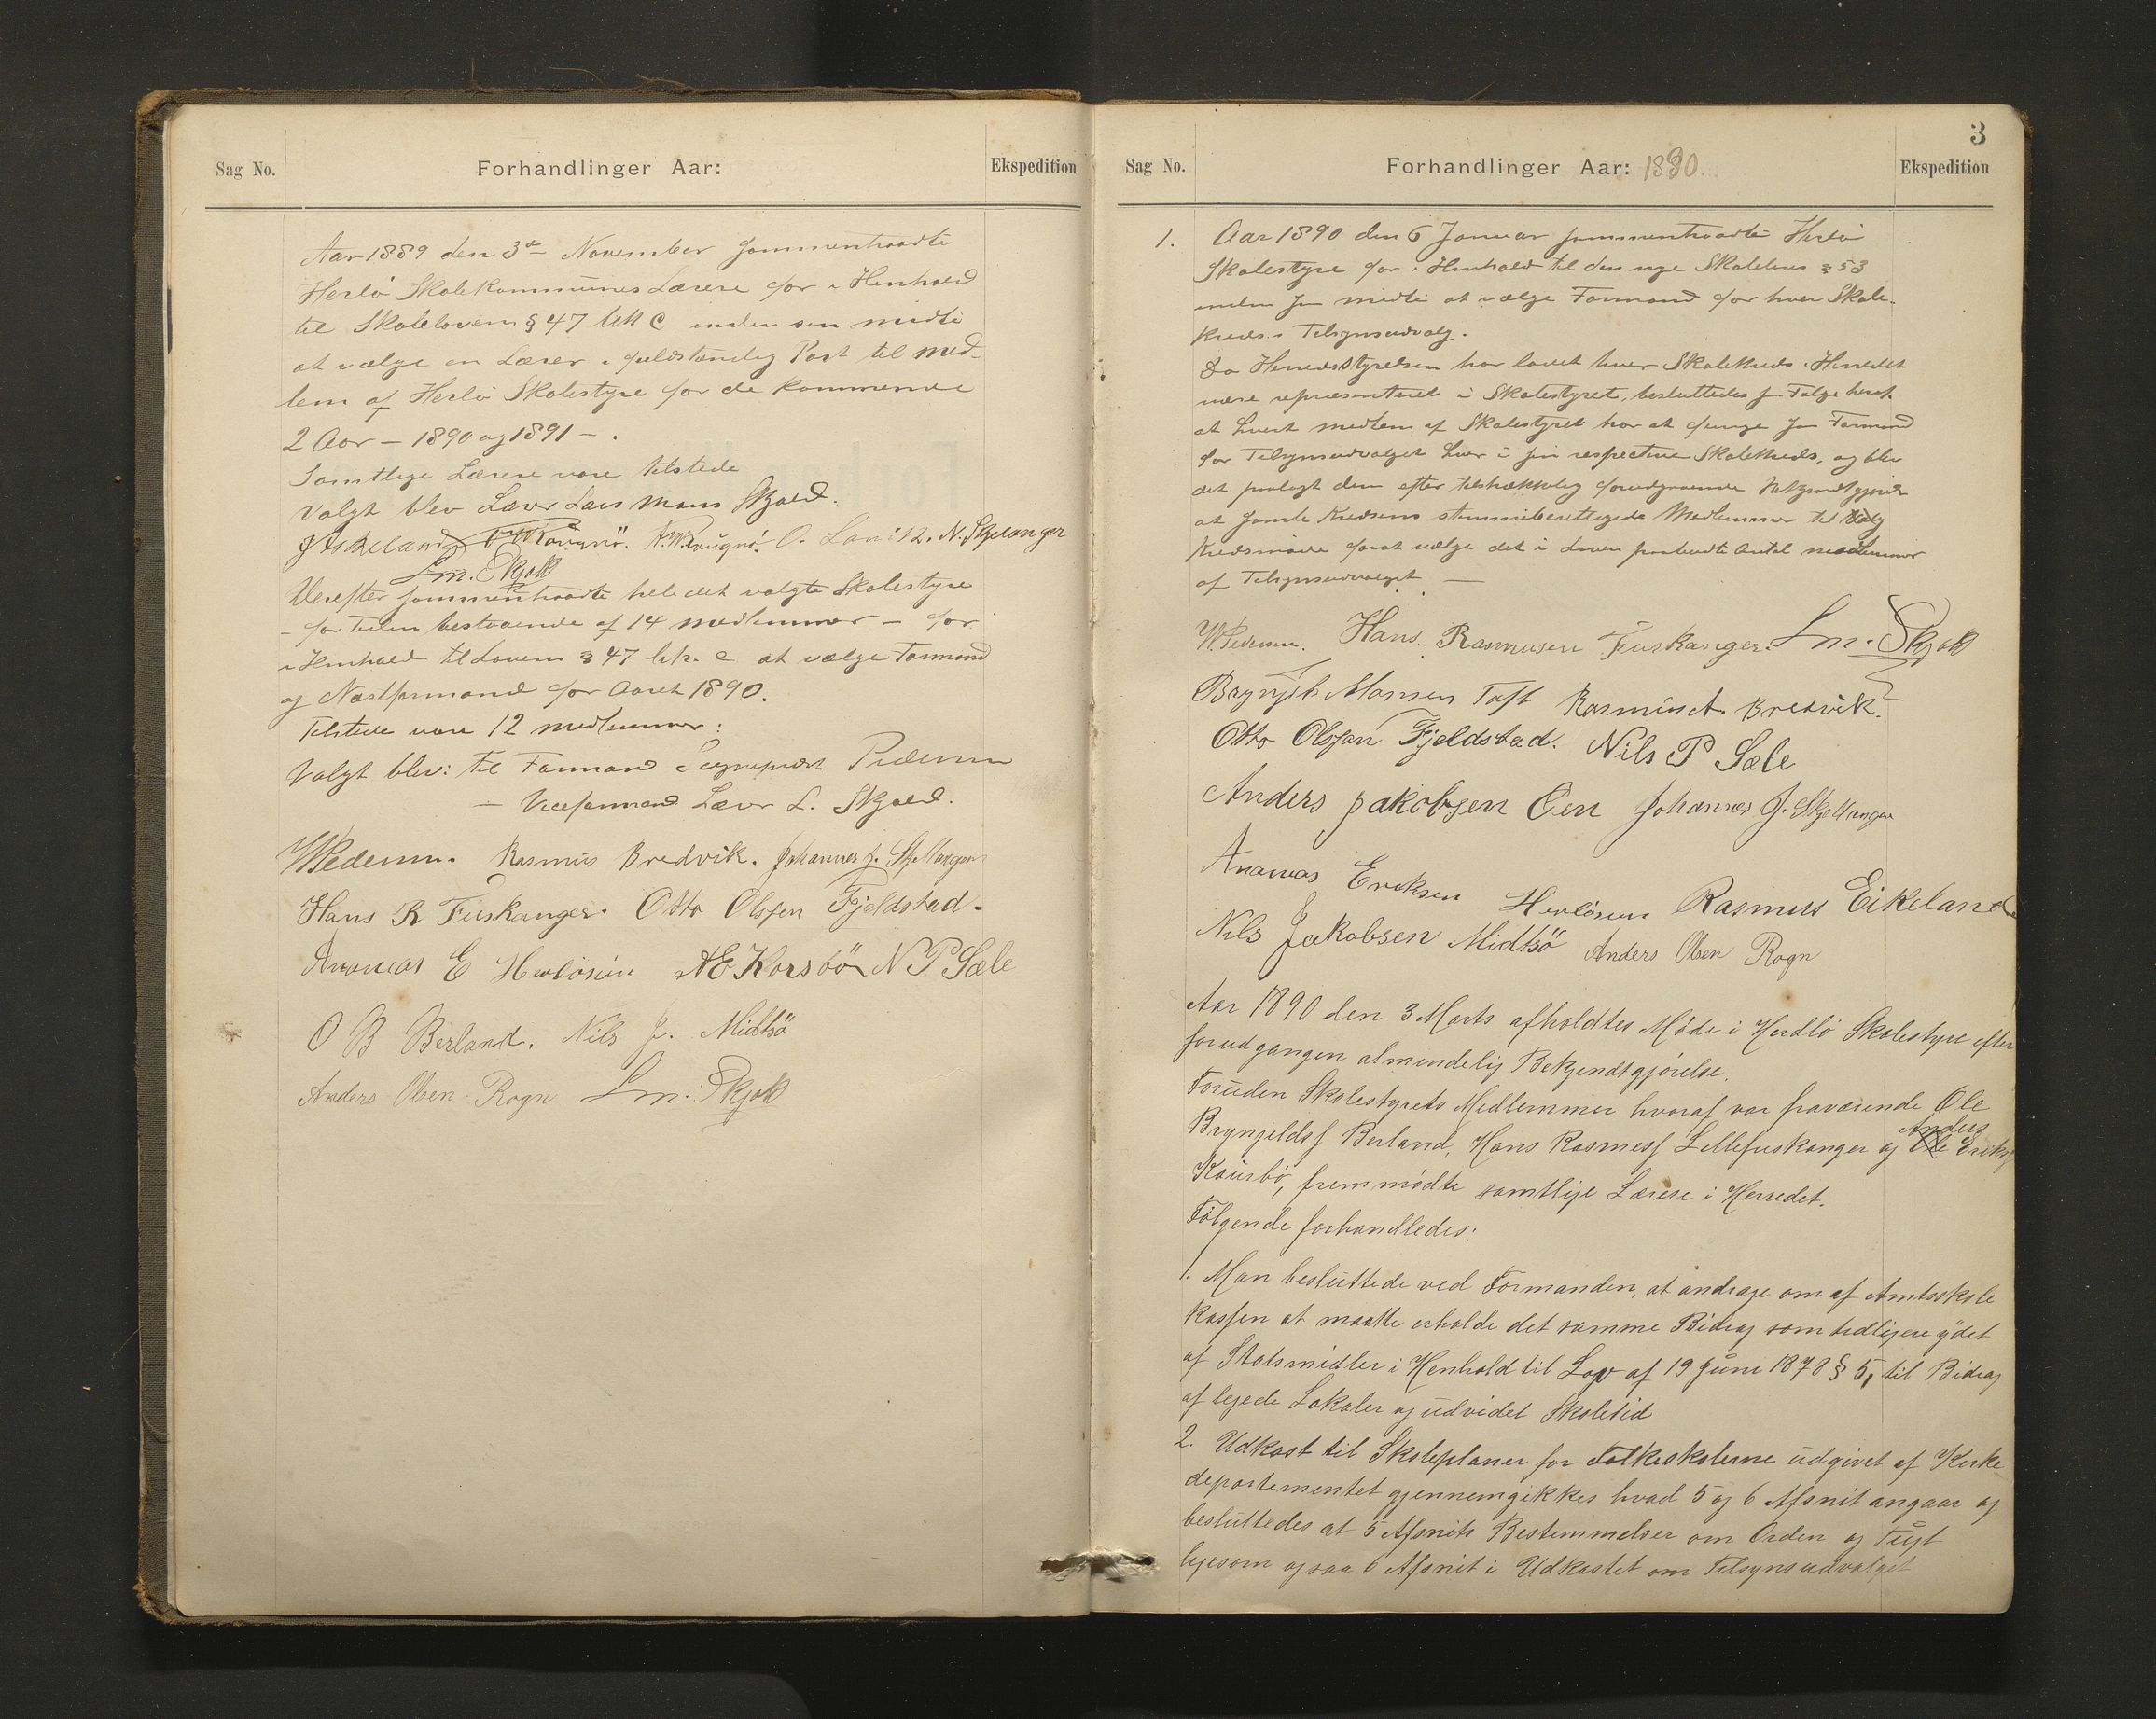 Sag No.
Forhandlinger Aar:
Ekspedition
Aar 1889 den 3die November sammentraadte
Herlö Skolekommunes Lærere for i Henhold
til Skoleloven § 47 litt C inden sin midte
at vælge en Lærer i fuldstændig Post til med-
lem af Herlö Skolestyre for de kommende
2 Aar – 1890 og 1891 – .
Samtlige Lærere vare tilstede
Valgt blev Lærer Lars Mons Skjold.
N. Skjelanger
Lm. Skjold
Derefter sammentraadte hele det valgte Skolestyre
– for Tiden bestaaende af 14 medlemmer – for
i Henhold til Loven § 47 litr. c at vælge Formand
og Næstformand for Aaret 1890.
Tilstede vare 12 medlemmer:
Valgt blev: til Formand Sognepræst Pedersen
– Viceformand Lærer L. Skjold.
WPedersen. Rasmus Bredvik. Johannes J. Skjellanger
Hans R Fuskanger. Otto Olssen Fjeldstad.
Ananias E Herlösün AE Korsbö N P Sæle
O B Berland. Nils J. Midtsö
Anders Olsen Rogn Lm. Skjold
3
Sag No.
Forhandlinger Aar: 1890.
Ekspedition
1. Aar 1890 den 6 Januar sammentraadte Herlö
Skolestyre for i Henhold til den nye Skolelov § 53
inden sin midte at vælge Formand for hver Skole-
kreds's Tilsynsudvalg.
Da Herredsstyrelsen har ladet hver Skolekreds i Herredet
være repræsenteret i Skolestyret, besluttedes som Følge heraf.
at hvert medlem af Skolestyret har at fungere som Formand
for Tilsynsudvalget hver i sin respective Skolekreds, og blev
det paalagt dem efter tilstrækkelig forudgaaende Bekjendtgjørelse
at samle Kredsens stemmeberettigede Medlemmer til
Kredsmøde forat vælge det i Loven paabudte Antal medlemmer
af Tilsynsudvalget. —
WPedersen. Hans Rasmusen Fuskanger. Lm. Skjold
Brynjel Monsen Toft Rasmus A. Bredvik.
Otto Olssen Fjeldstad. Nils P Sæle
Anders Jakobsen Öen Johannes J. Skjellanger
Ananias Eriksen Herlösün Rasmus Eikeland
Nils Jakobsen Midtsö Anders Olsen Rogn
Aar 1890 den 3 Marts afholdtes Möde i Herdlö Skolestyre efter
forudgangen almindelig Bekjendtgjörelse.
Foruden Skolestyrets Medlemmer hvoraf var fraværende Ole
Bryngeldss Berland, Hans Rasmess Lillefuskanger og Anders Eriks
Kaursbö, fremmödte samtlige Lærere i Herredet.
Fölgende forhandledes:
1. Man besluttede ved Formanden, at andrage om af Amtsskole
kassen at maatte erholde det samme Bidrag som tidligere ydet
af Statsmidler i Henhold til Lov af 19 Juni 1878 § 5, til Bidrag
af lejede Lokaler og udvidet Skoletid
2. Udkast til Skoleplaner for Folkeskolerne udgivet af Kirke
departementet gjennemgikkes hvad 5 og 6 Afsnit angaar og
besluttedes at 5 Afsnits Bestemmelser om Orden og Tugt
ligesom ogsaa 6 Afsnit i Udkastet om Tilsynsudvalget